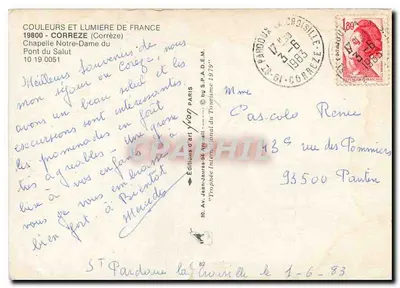 COULEURS ET LUMIERE DE FRANCE
19800 - CORREZE (Corrèze)
Chapelle Notre-Dame du
Pont du Salut
10 19 0051
Meilleurs souvenirs de
mon séjour en Corrèze, nous
avons un beau soleil et les
excursions sont intéressantes
les promenades en forêt
agréables - une grosse
bise à vos enfants et à
vous je vous embrasse
bien fort à Bientôt
Editions d'art yvon PARIS
by S.P.A.D.E.M.
"Trophée International du Tourisme 1979"
CORREZE
1983
1,80
Mme
Cas-colo Renée
rue des Pommiers
93500 Pantin
St Pardoux la Croisille le 1-6-83